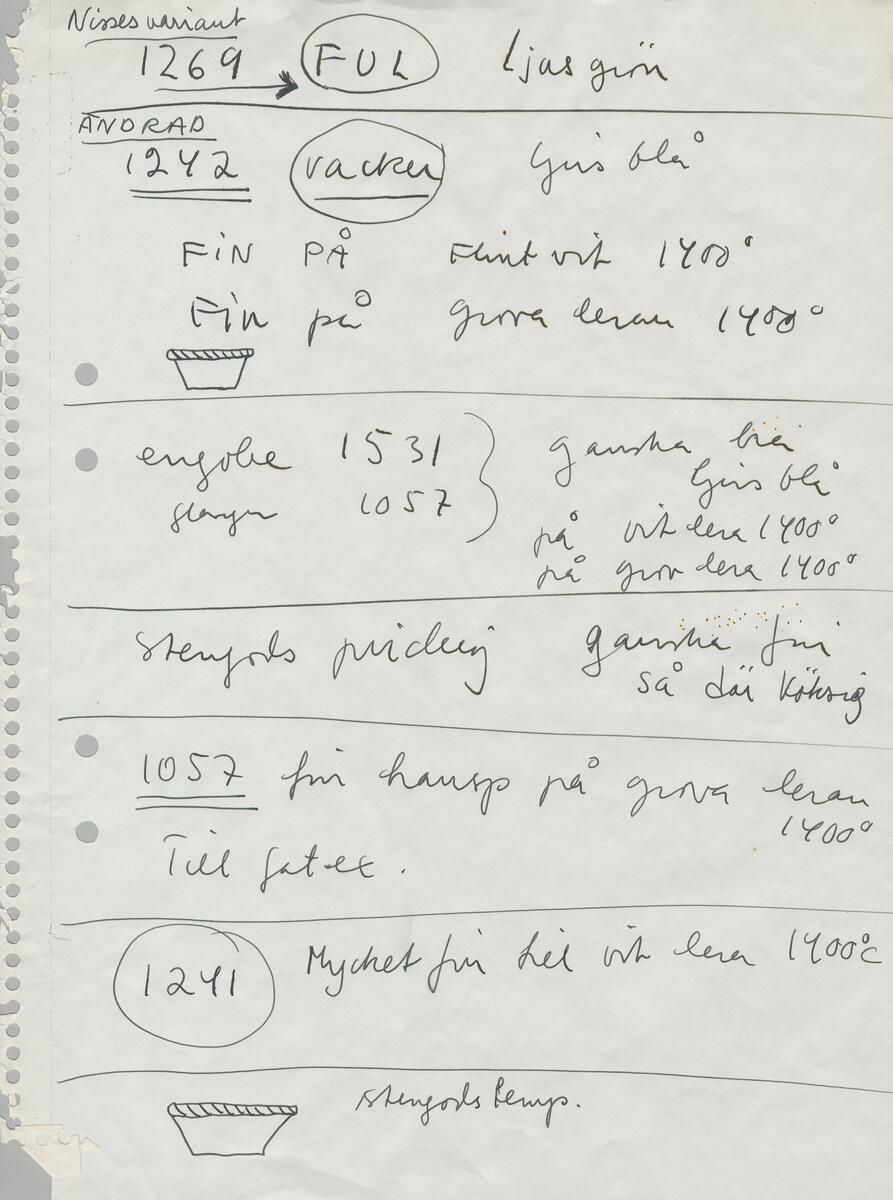 Nisses variant
1269 FUL ljus grön
ÄNDRAD
1242 vacker ljus blå
FIN PÅ Flint vit 1400°
FIN på grova leran 1400°
engobe 1531 ganska bra
ljus blå
glasyr 1057
på vit lera 1400°
på grov lera 1400°
Stengods ganska fin
så där
1057 fin på grova leran
1400°
Till
1241 Mycket fin till vit lera 1400°C
stengods temp.